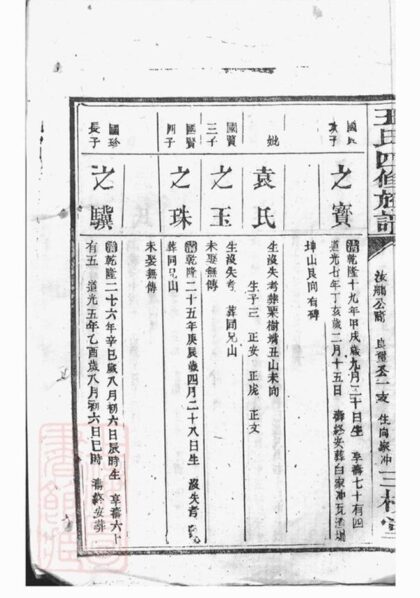 王氏四修族譜
汝
公
三
國
次子
之寶
清乾隆十九年甲戌歲九月二十日生 享壽七十有四
道光七年丁亥歲二月十五日 壽終安葬白家冲瓦
坤山艮向有碑
妣
袁氏
生沒失考葬栗樹
丑山未向
生子三 正安 正龙 正文
國賢
三子
之玉
生沒失考 葬同兄山
未娶無傳
國賢
四子
之珠
清乾隆二十五年庚辰歲四月二十八日生 沒失考
葬同兄山
未娶無傳
國珍
長子
之驥
清乾隆二十六年辛巳歲八月初六日辰時生 享壽六十
有五 道光五年乙酉歲八月初六日巳時 壽終安葬